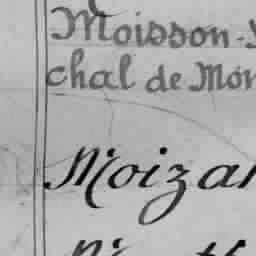 Moisson-
chal de Mon
Moizan